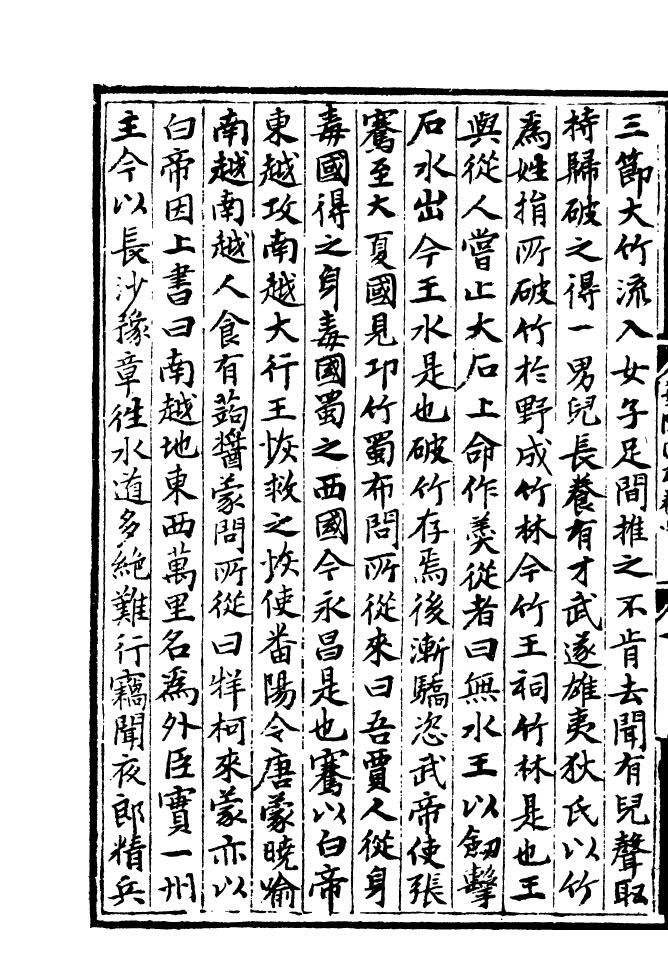 三節大竹流入女子足間推之不肯去聞有兒聲取
持歸破之得一男兒長養有才武遂雄夷狄氏以竹
爲姓捐所破竹於野成竹林今竹王祠竹林是也王
與從人嘗止大石上命作羹從者曰無水王以劒擊
石水出今王水是也破竹存焉後漸驕恣武帝使張
騫至大夏國見邛竹蜀布問所從來曰吾賈人從身
毒國得之身毒國蜀之西國今永昌是也騫以白帝
東越攻南越大行王恢救之恢使畨陽令唐蒙曉喻
南越南越人食有蒟醬蒙問所從曰牂柯來蒙亦以
白帝因上書曰南越地東西萬里名爲外臣實一州
主今以長沙豫章徃水道多絶難行竊聞夜郎精兵